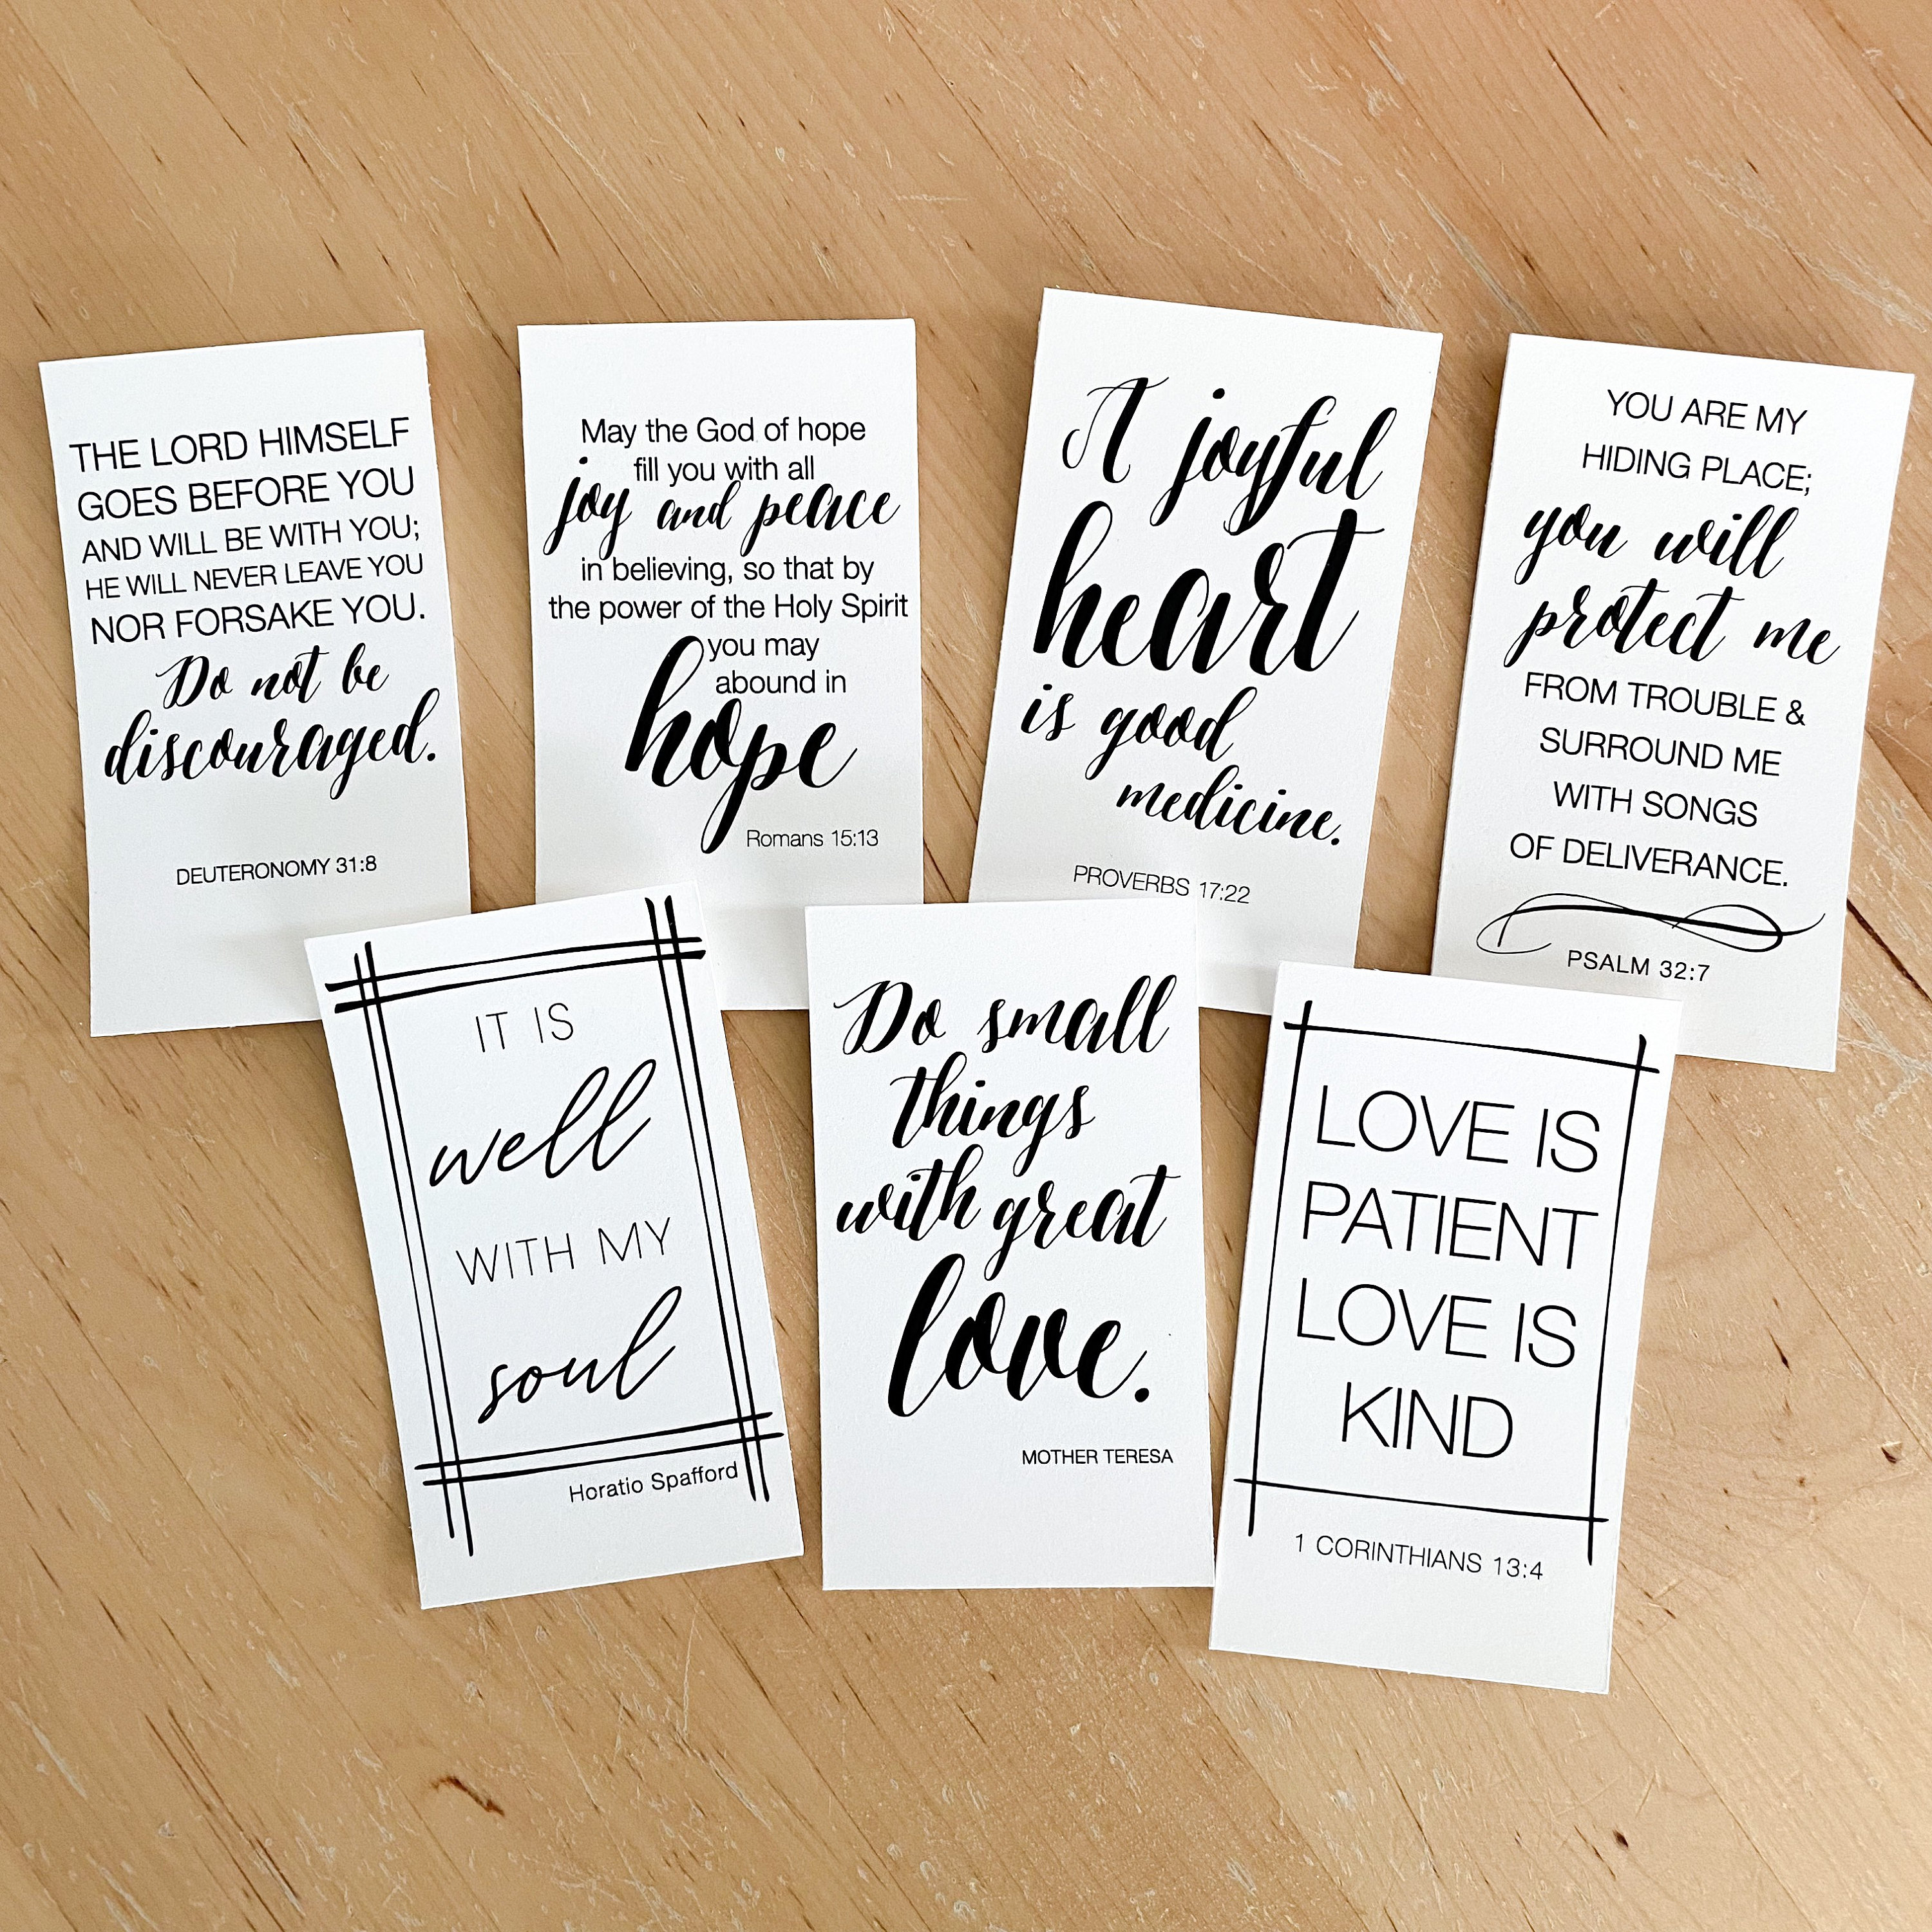 THE LORD HIMSELF
GOES BEFORE YOU
AND WILL BE WITH YOU;
HE WILL NEVER LEAVE YOU
NOR FORSAKE YOU.
Do not be
discouraged.
DEUTERONOMY 31:8
May the God of hope
fill you with all
joy and peace
in believing, so that by
the power of the Holy Spirit
you may
abound in
hope
Romans 15:13
A joyful
heart
is good
medicine.
PROVERBS 17:22
YOU ARE MY
HIDING PLACE;
you will
protect me
FROM TROUBLE &
SURROUND ME
WITH SONGS
OF DELIVERANCE.
PSALM 32:7
IT IS
well
WITH MY
soul
Horatio Spafford
Do small
things
with great
love.
MOTHER TERESA
LOVE IS
PATIENT
LOVE IS
KIND
1 CORINTHIANS 13:4